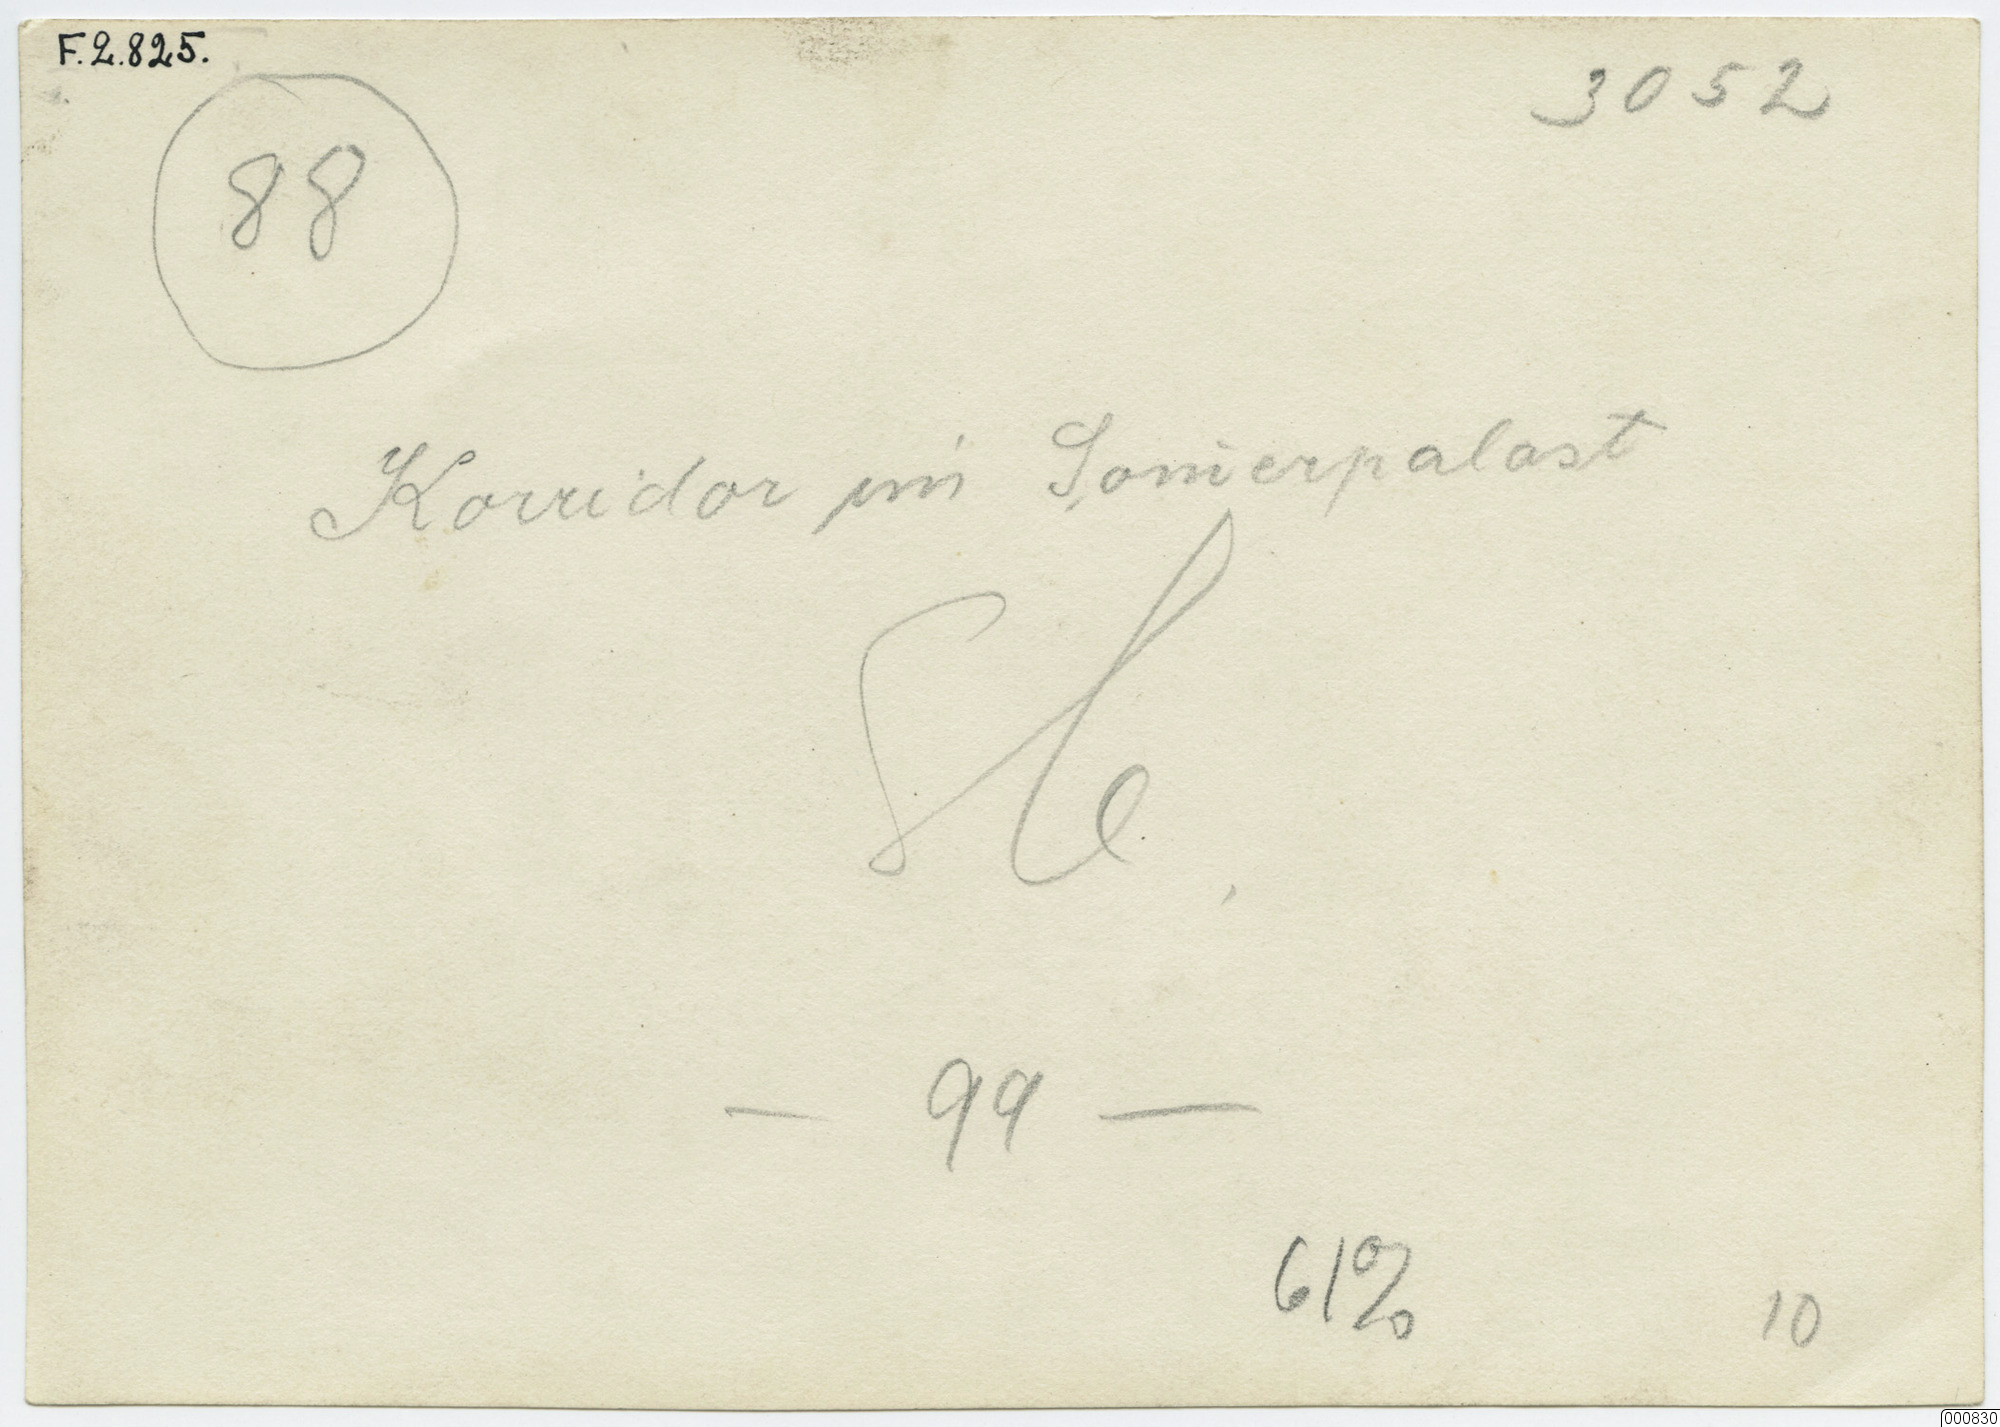 F.2.825.
3052
88
Korridor im Somerpalast
— 99 —
61%
10
000830